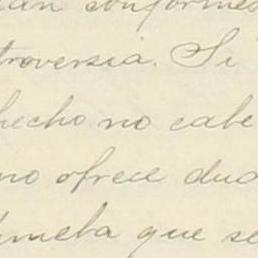 an conformes
troversia. Si
hecho no cabe
no ofrece dud
ueba que se